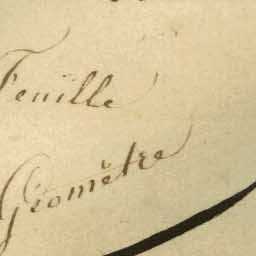 Feuille
Géomètre